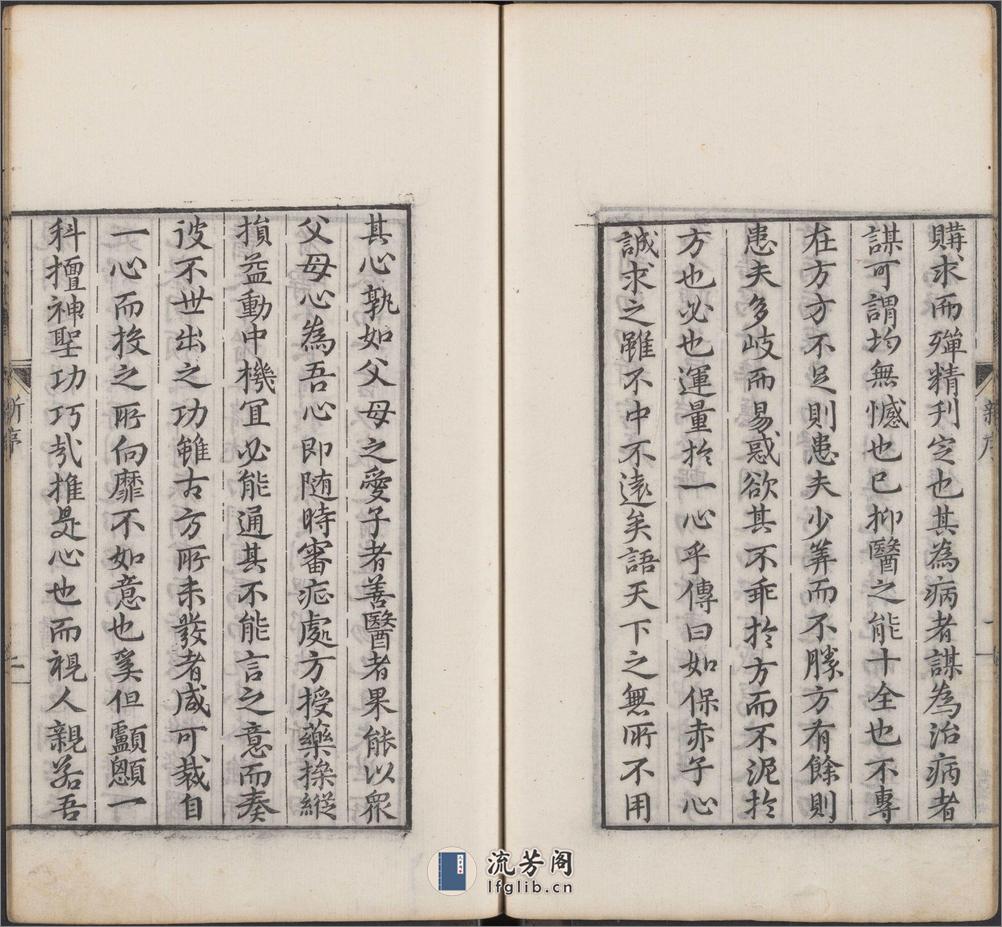 購求而殫精刋定也其為病者謀為治病者
謀可謂均無憾也已抑醫之能十全也不專
在方方不足則患夫少筭而不勝方有餘則
患夫多岐而易惑欲其不乖於方而不泥於
方也必也運量於一心乎傳曰如保赤子心
誠求之雖不中不遠矣語天下之無所不用
新序
其心孰如父母之愛子者善醫者果能以衆
父母心為吾心即随時審症處方授藥操縱
損益動中機冝必能通其不能言之意而奏
彼不世出之功雖古方所未發者咸可裁自
一心而投之所向靡不如意也奚但顱顖一
科擅神聖功巧㢤推是心也而視人親若吾
流芳阁
lfglib.cn